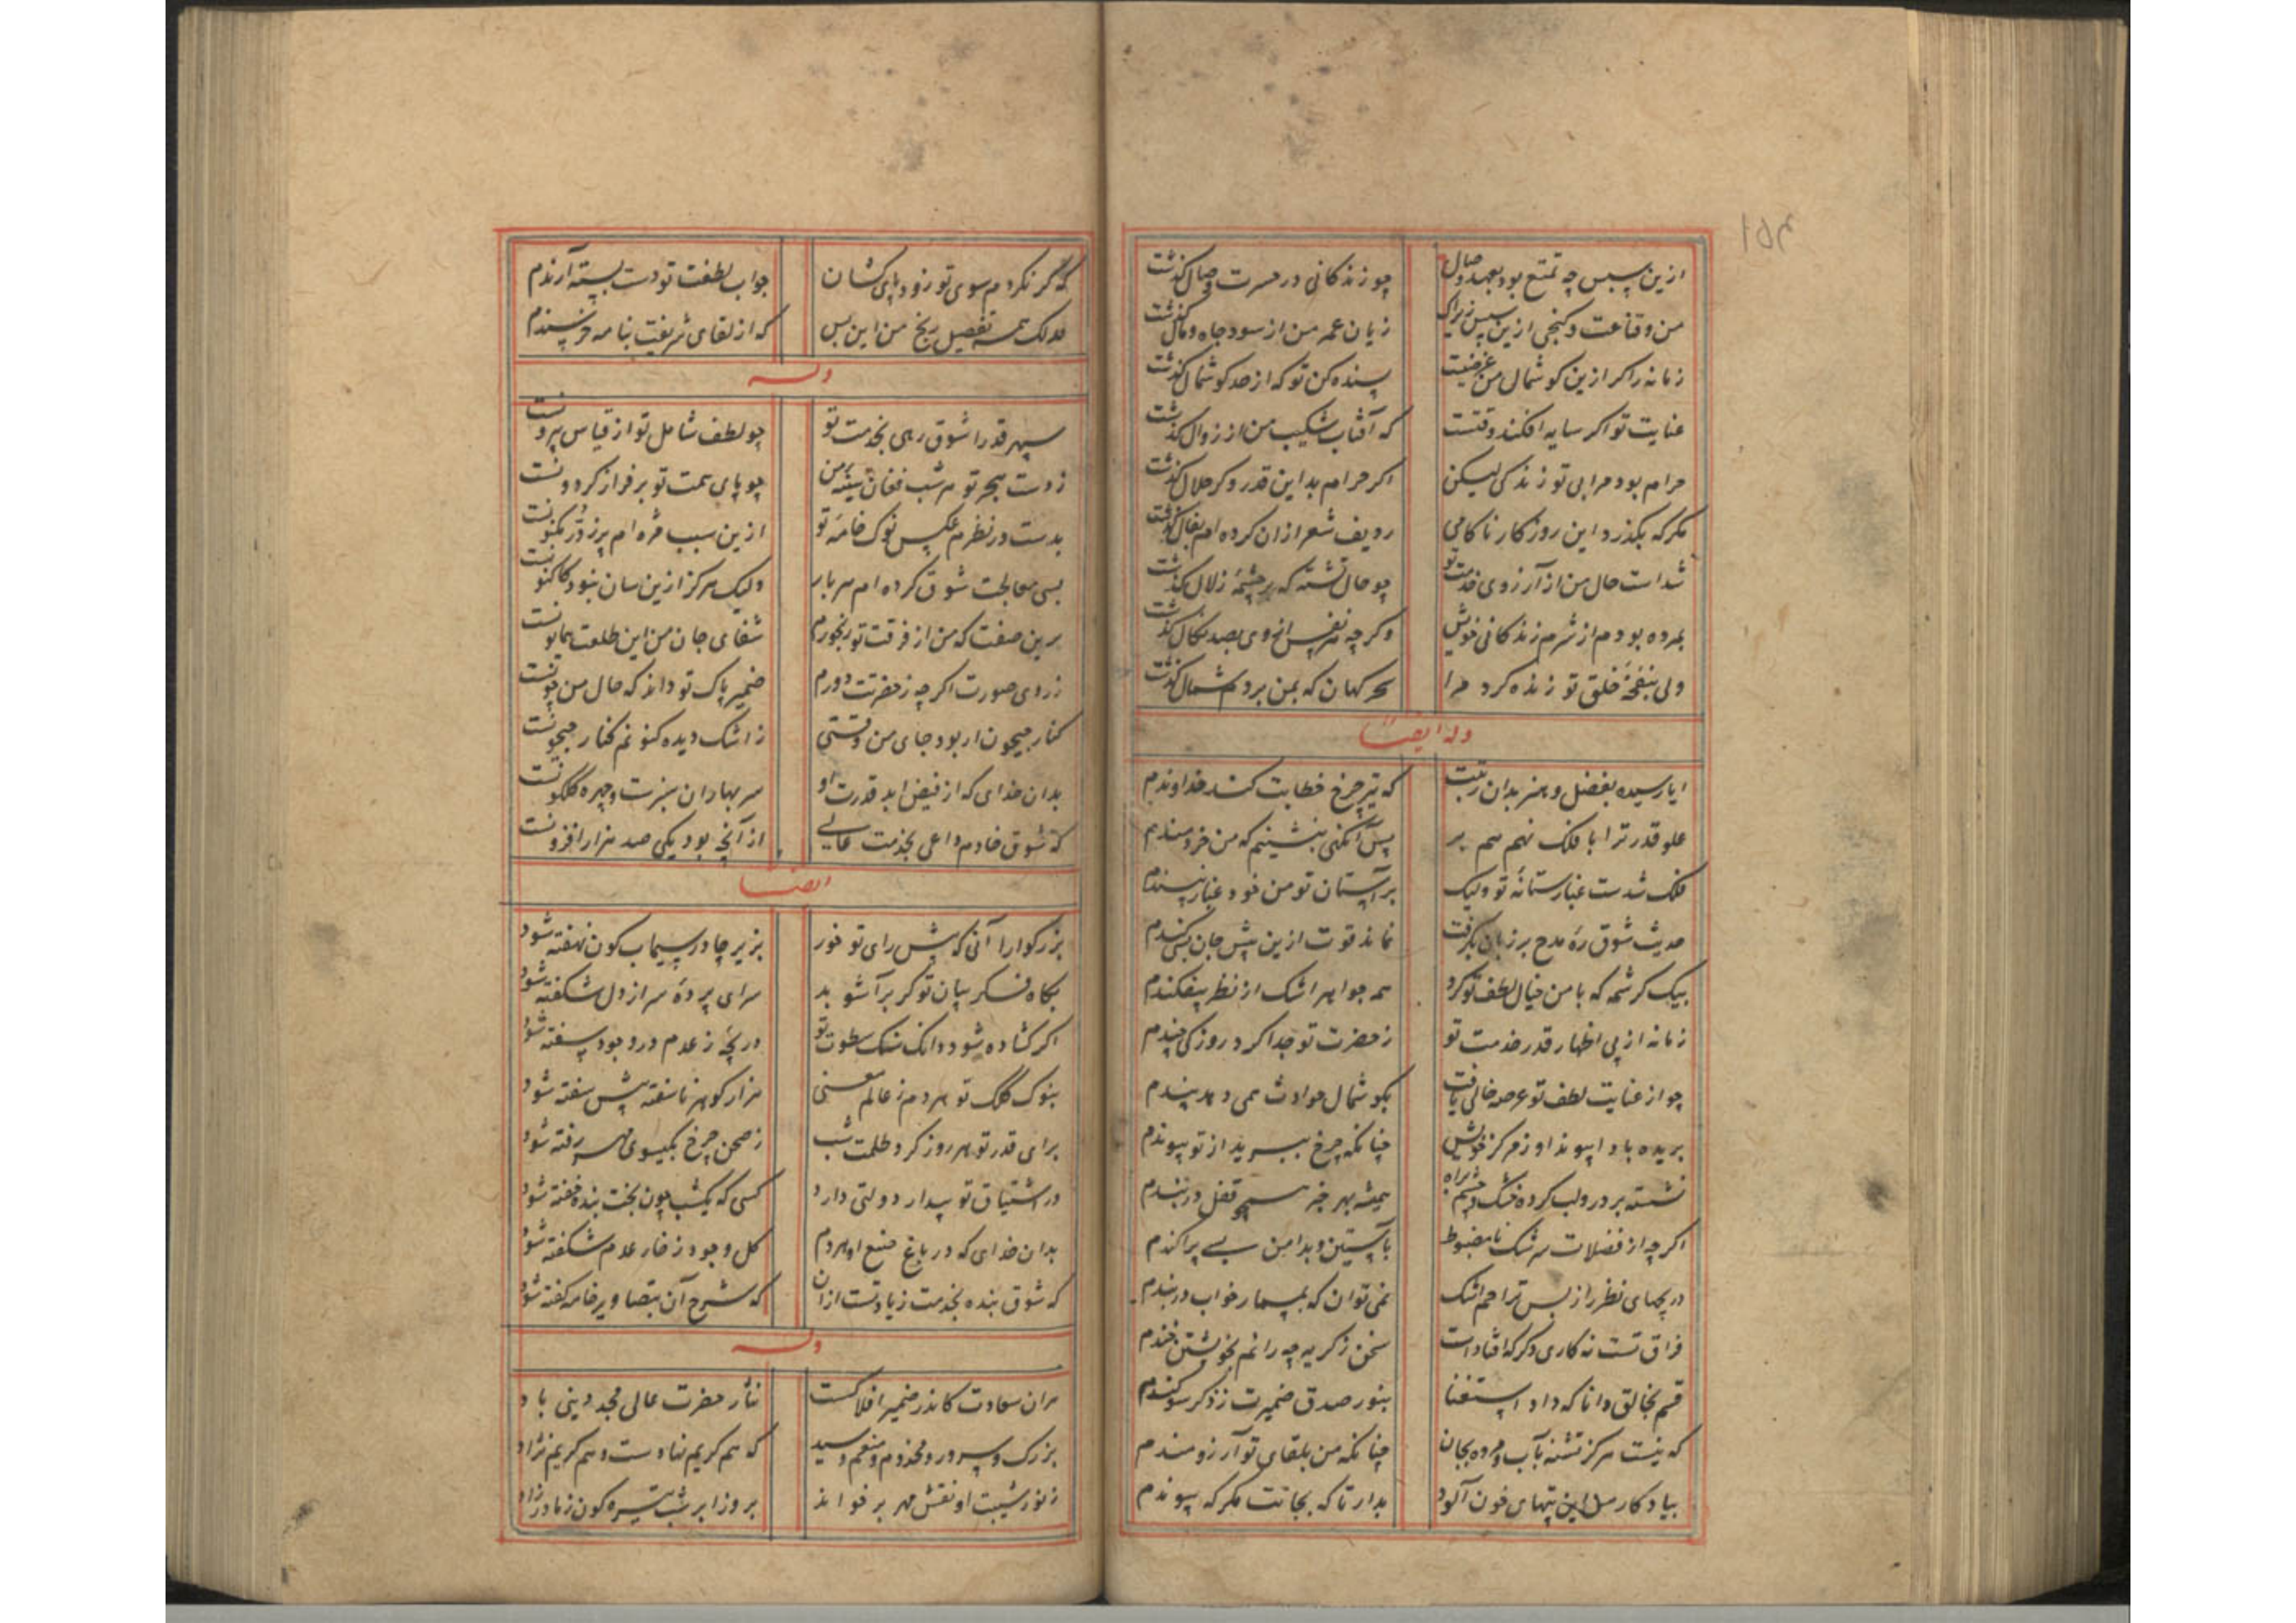 ازین سپس چه تمتع بود بعهد وصال چو زندکانی در حسرت وصال کذشت
من و قناعت و کنجی ازین سپس زیراک زیان عمر من از سود جاه و مال کذشت
زمانه را کر ازین کوشمال من غرضیت پسنده کن تو که از حد کوشمال کذشت
عنایت تو اکر سایه افکند وقتست که آفتاب شکیب من از زوال کذشت
حرام بود مرا بی تو زندکی لیکن اکر حرام بد این قدر و کر حلال کذشت
مکر که بکذرد این روزکار ناکامی ردیف شعر ازان کرده ام بفال کذشت
شداست حال من از آرزوی خدمت تو چو حال تشنه که بر چشمه زلال کذشت
بمرده بودم از شرم زندکانی خویش وکر چه هر نفس از وی بصد نکال کذشت
ولی بنفحه خلق تو زنده کرد مرا سحر کهان که بمن بر دم شمال کذشت
وله ایضا
ایا رسیده بفضل و هنر بدان رتبت که تیر چرخ خطابت کند خداوندم
علو قدر ترا با فلک نهم هم بر پس آنکهی بنشینم که من خردمندم
فلک شدست غبار ستانه تو ولیک بر آستان تو من خود غبار نپسندم
حدیث شوق ره مدح بر زبان بکرفت نماند قوت ازین پیش جان بسی کندم
بیک کرشمه که با من خیال لطف تو کرد همه جواهر اشک از نظر بیفکندم
زمانه از پی اظهار قدر خدمت تو ز حضرت تو جدا کرد روزکی چندم
چو از عنایت لطف تو عرصه خالی یافت بکوشمال حوادث همی دهد پندم
بریده باد ا پیوند او ز مرکز خویش چنانکه چرخ ببرید از تو پیوندم
نشسته بر در و لب کرده خشک و چشم براه همیشه بهر خبر همچو قفل در بندم
اکر چه از فضلات سرشک نامضبوط بآستین و بدامن بسی پراکندم
دریچهای نظر را ز بس تراحم اشک نمی توان که بمسمار خواب در بندم
فراق تست نه کاری دکر که افتاداست سخن ز کریه چه رانم بخویشتن خندم
قسم بخالق دانا که داد استغنا بنور صدق ضمیرت ز ذکر سوکندم
که نیست هرکز تشنه بآب و مرده بجان چنانکه من بلقای تو آرزومندم
بیادکار من این بیتهای خون آلود بدار تا که بجانت مکر که پیوندم
که کر نکردم سوی تو زود پای کشان جواب لطفت تو دست بسته آرندم
فذلک همه تفصیل رنج من این بس که از لقای شریفت بنامه خرسندم
وله
سپهر قدرا شوق رهی بخدمت تو چو لطف شامل تو از قیاس بیرونست
ز دست هجر تو هر شب فغان سینه من چو پای همت تو بر فراز کردونست
بدست در نظرم عکس نوک خامه تو ازین سبب مژه ام پر ز در مکنونست
بسی معالجت شوق کرده ام هر بار ولیک هرکز ازین سان نبود کاکنونست
برین صفت که من از فرقت تو رنجورم شفای جان من این طلعت همایونست
ز روی صورت اکر چه ز حضرتت دورم ضمیر پاک تو داند که حال من چونست
کنار جیحون ار بود جای من وقتی ز اشک دیده کنونم کنار جیحونست
بدان خدای که از فیض ابر قدرت او سر بهاران سبزست و چهره کلکونست
که شوق خادم داعی بخدمت عالی از آنچه بود یکی صد هزار افزونست
ایضا
بزرکوارا آنی که پیش رای تو خور بزیر چادر سیماب کون نهفته شود
بکاه فکر بیان تو کر برآشوبد سرای پرده سر از دل شکفته شود
اکر کشاده شود دانک سنک سطوت تو دریچه ز عدم در وجود سفته شود
بنوک کلک تو هر دم ز عالم معنی هزار کوهر ناسفته پیش سفته شود
برای قدر تو هر روز کرد ظلمت شب ز صحن چرخ بکیسوی مهر رفته شود
در اشتیاق تو بیدار دولتی دارد کسی که یکشب چون بخت بنده خفته شود
بدان خدای که در باغ صنع او هر دم کل وجود ز خار عدم شکفته شود
که شوق بنده بخدمت زیادتست ازان که شرح آن بتصاویر خامه کفته شود
وله
هران سعادت کاندر ضمیر افلاکست نثار حضرت عالی مجد دینی باد
بزرک و سرور و مخدوم و منعم و سید که هم کریم نهادست و هم کریم نژاد
ز نور شیبت او نقش مهر بر خواند بروز ابر شب تیره کون ز مادر زاد